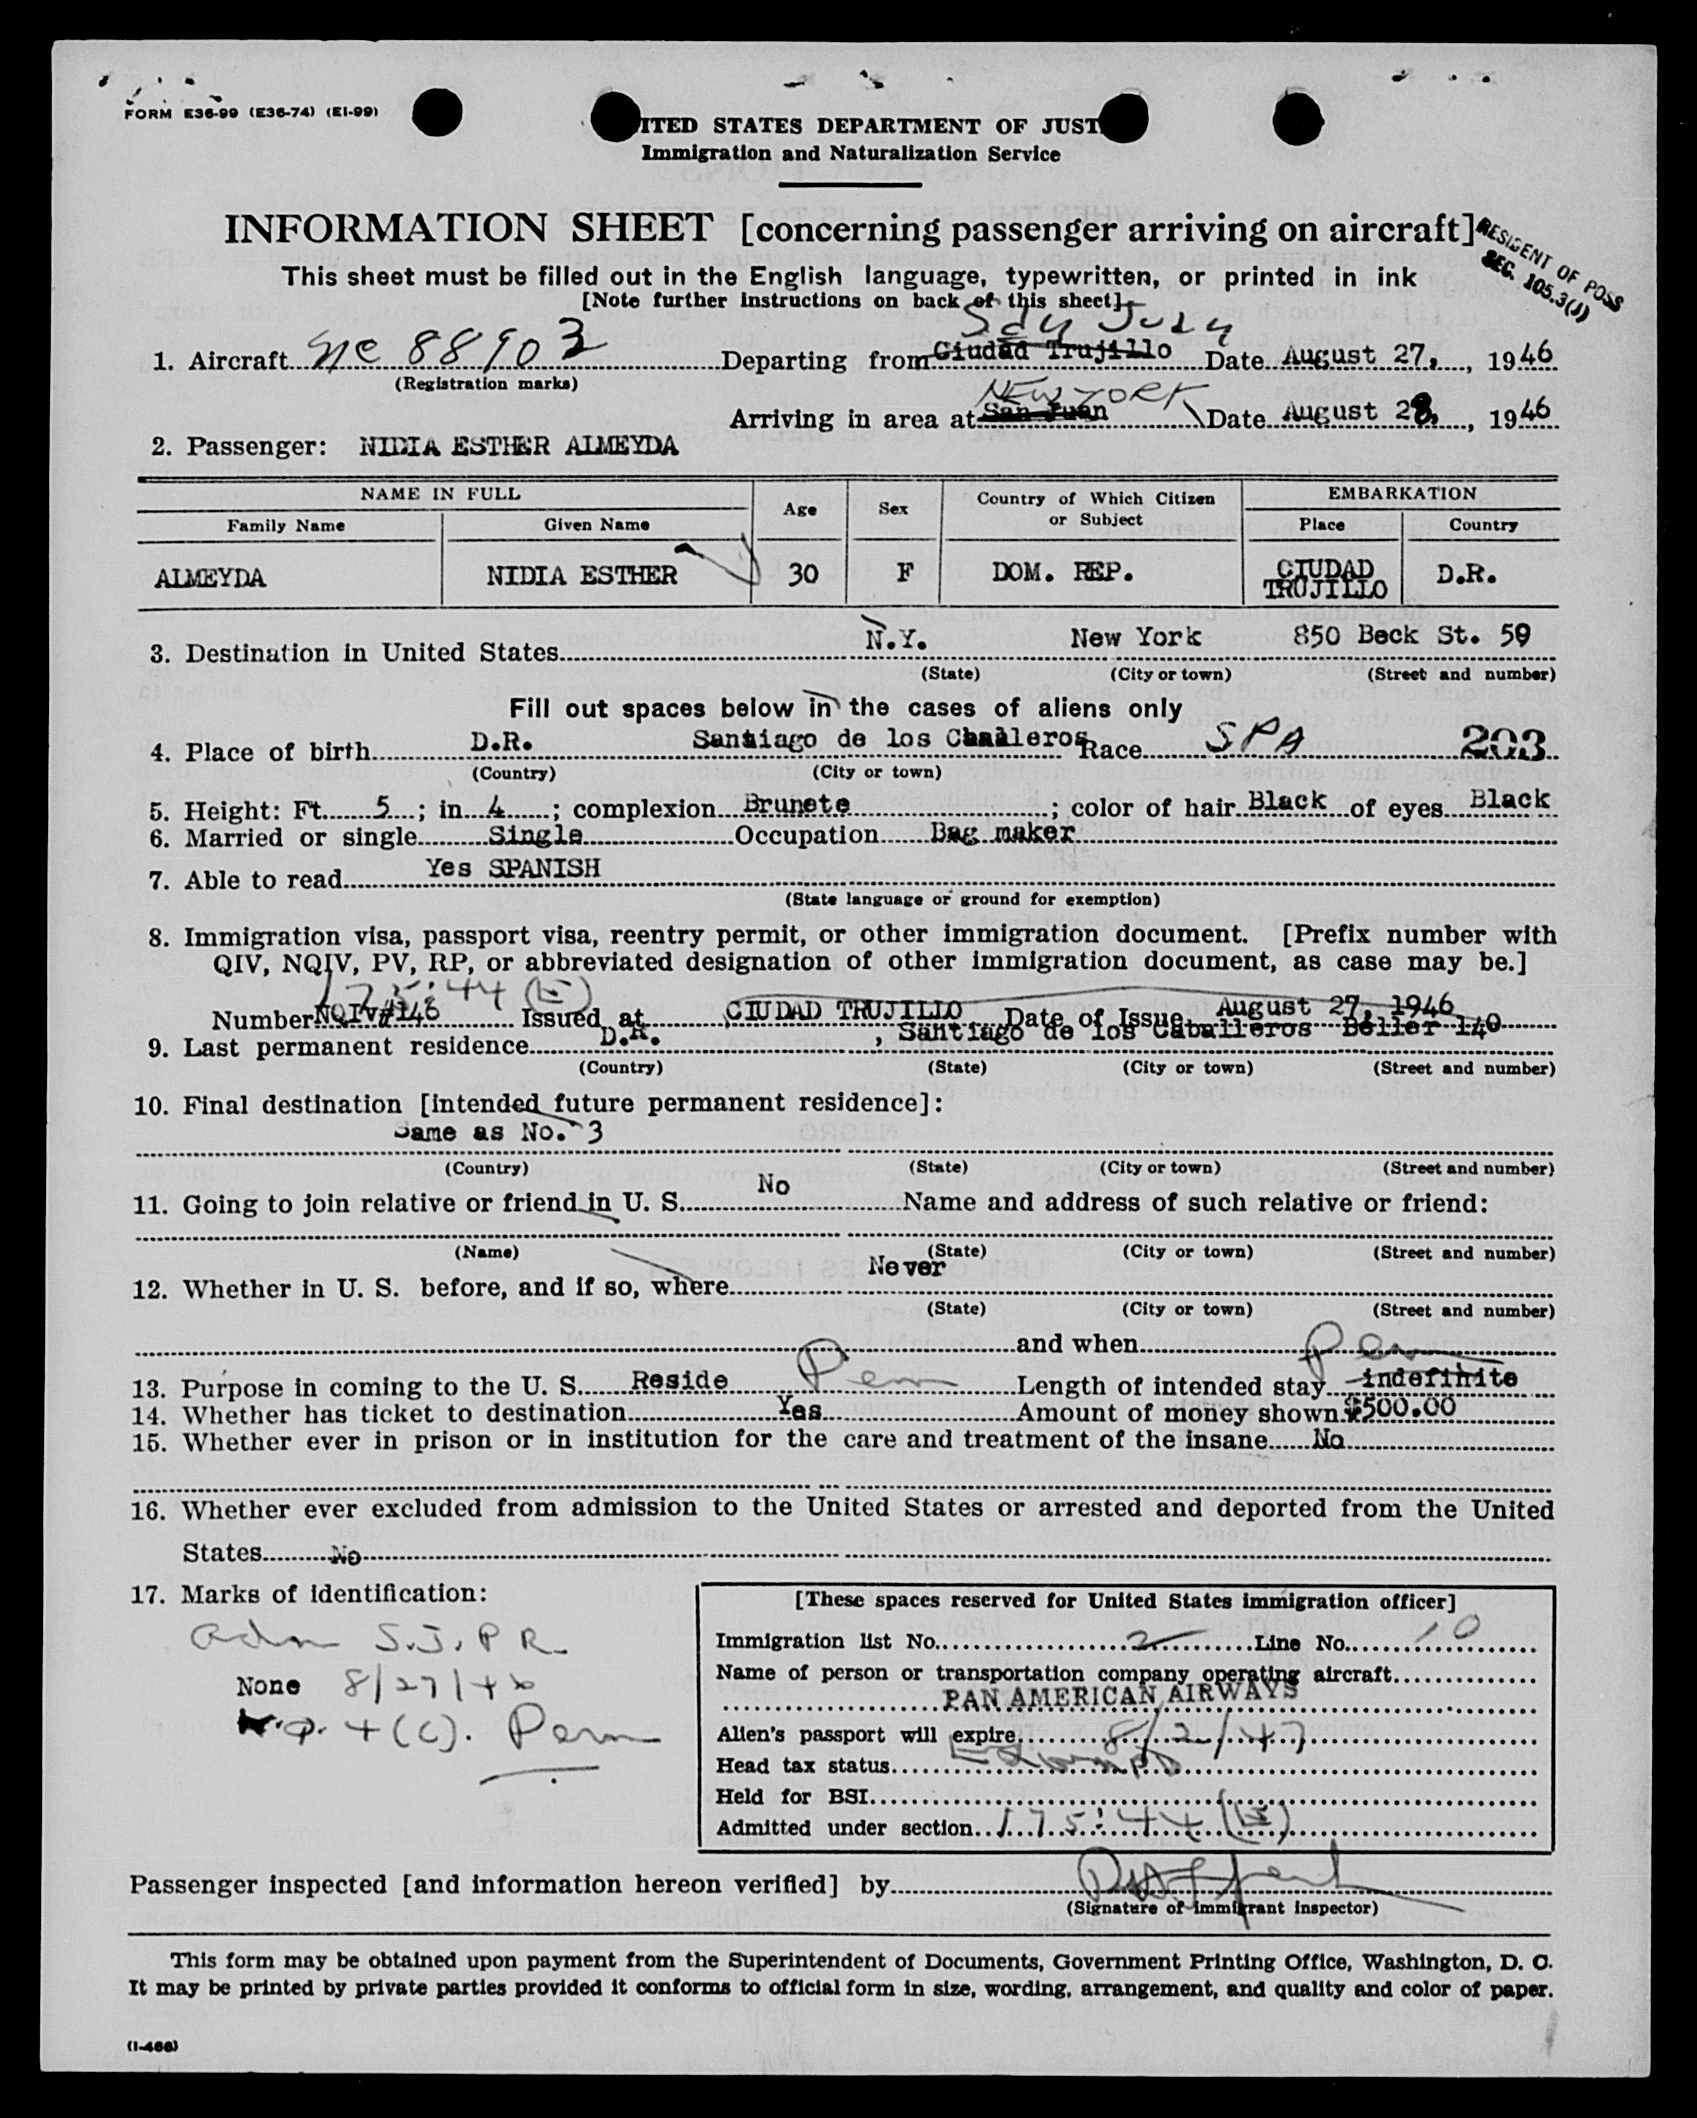 FORM E36-99 (E36-74) (EI-99)
ITED STATES DEPARTMENT OF JUST
Immigration and Naturalization Service
INFORMATION SHEET [concerning passenger arriving on aircraft]
RESIDENT OF POSS
SEC. 105.3(J)
This sheet must be filled out in the English language, typewritten, or printed in ink
[Note further instructions on back of this sheet]
San Juan
1. Aircraft NC 88903 Departing from Ciudad Trujillo Date August 27, 1946
(Registration marks)
NEW YORK
Arriving in area at San Juan Date August 28, 1946
2. Passenger: NIDIA ESTHER ALMEYDA
NAME IN FULL Age Sex Country of Which Citizen or Subject EMBARKATION
Family Name Given Name Place Country
ALMEYDA NIDIA ESTHER 30 F DOM. REP. CIUDAD TRUJILLO D.R.
3. Destination in United States N.Y. New York 850 Beck St. 59
(State) (City or town) (Street and number)
Fill out spaces below in the cases of aliens only
4. Place of birth D.R. Santiago de los Caballeros Race SPA 203
(Country) (City or town)
5. Height: Ft. 5; in. 4; complexion Brunete; color of hair Black of eyes Black
6. Married or single Single Occupation Bag maker
7. Able to read Yes SPANISH
(State language or ground for exemption)
8. Immigration visa, passport visa, reentry permit, or other immigration document. [Prefix number with
QIV, NQIV, PV, RP, or abbreviated designation of other immigration document, as case may be.]
175:44 (E)
Number NQIV#146 Issued at CIUDAD TRUJILLO Date of Issue August 27, 1946
9. Last permanent residence D.R., Santiago de los Caballeros Beller 140
(Country) (State) (City or town) (Street and number)
10. Final destination [intended future permanent residence]:
Same as No. 3
(Country) (State) (City or town) (Street and number)
11. Going to join relative or friend in U. S. No Name and address of such relative or friend:
(Name) (State) (City or town) (Street and number)
12. Whether in U. S. before, and if so, where Never
(State) (City or town) (Street and number)
and when
Perm
13. Purpose in coming to the U. S. Reside Perm Length of intended stay indefinite
14. Whether has ticket to destination Yes Amount of money shown $500.00
15. Whether ever in prison or in institution for the care and treatment of the insane No
16. Whether ever excluded from admission to the United States or arrested and deported from the United
States No
17. Marks of identification:
Adm S.J. P R
None 8/27/46
4 (C). Perm
[These spaces reserved for United States immigration officer]
Immigration list No. 2 Line No. 10
Name of person or transportation company operating aircraft
PAN AMERICAN AIRWAYS
Alien's passport will expire 8/2/47
Head tax status Exempt
Held for BSI
Admitted under section 175:44 (E)
Passenger inspected [and information hereon verified] by
(Signature of immigrant inspector)
This form may be obtained upon payment from the Superintendent of Documents, Government Printing Office, Washington, D. C.
It may be printed by private parties provided it conforms to official form in size, wording, arrangement, and quality and color of paper.
(I-466)